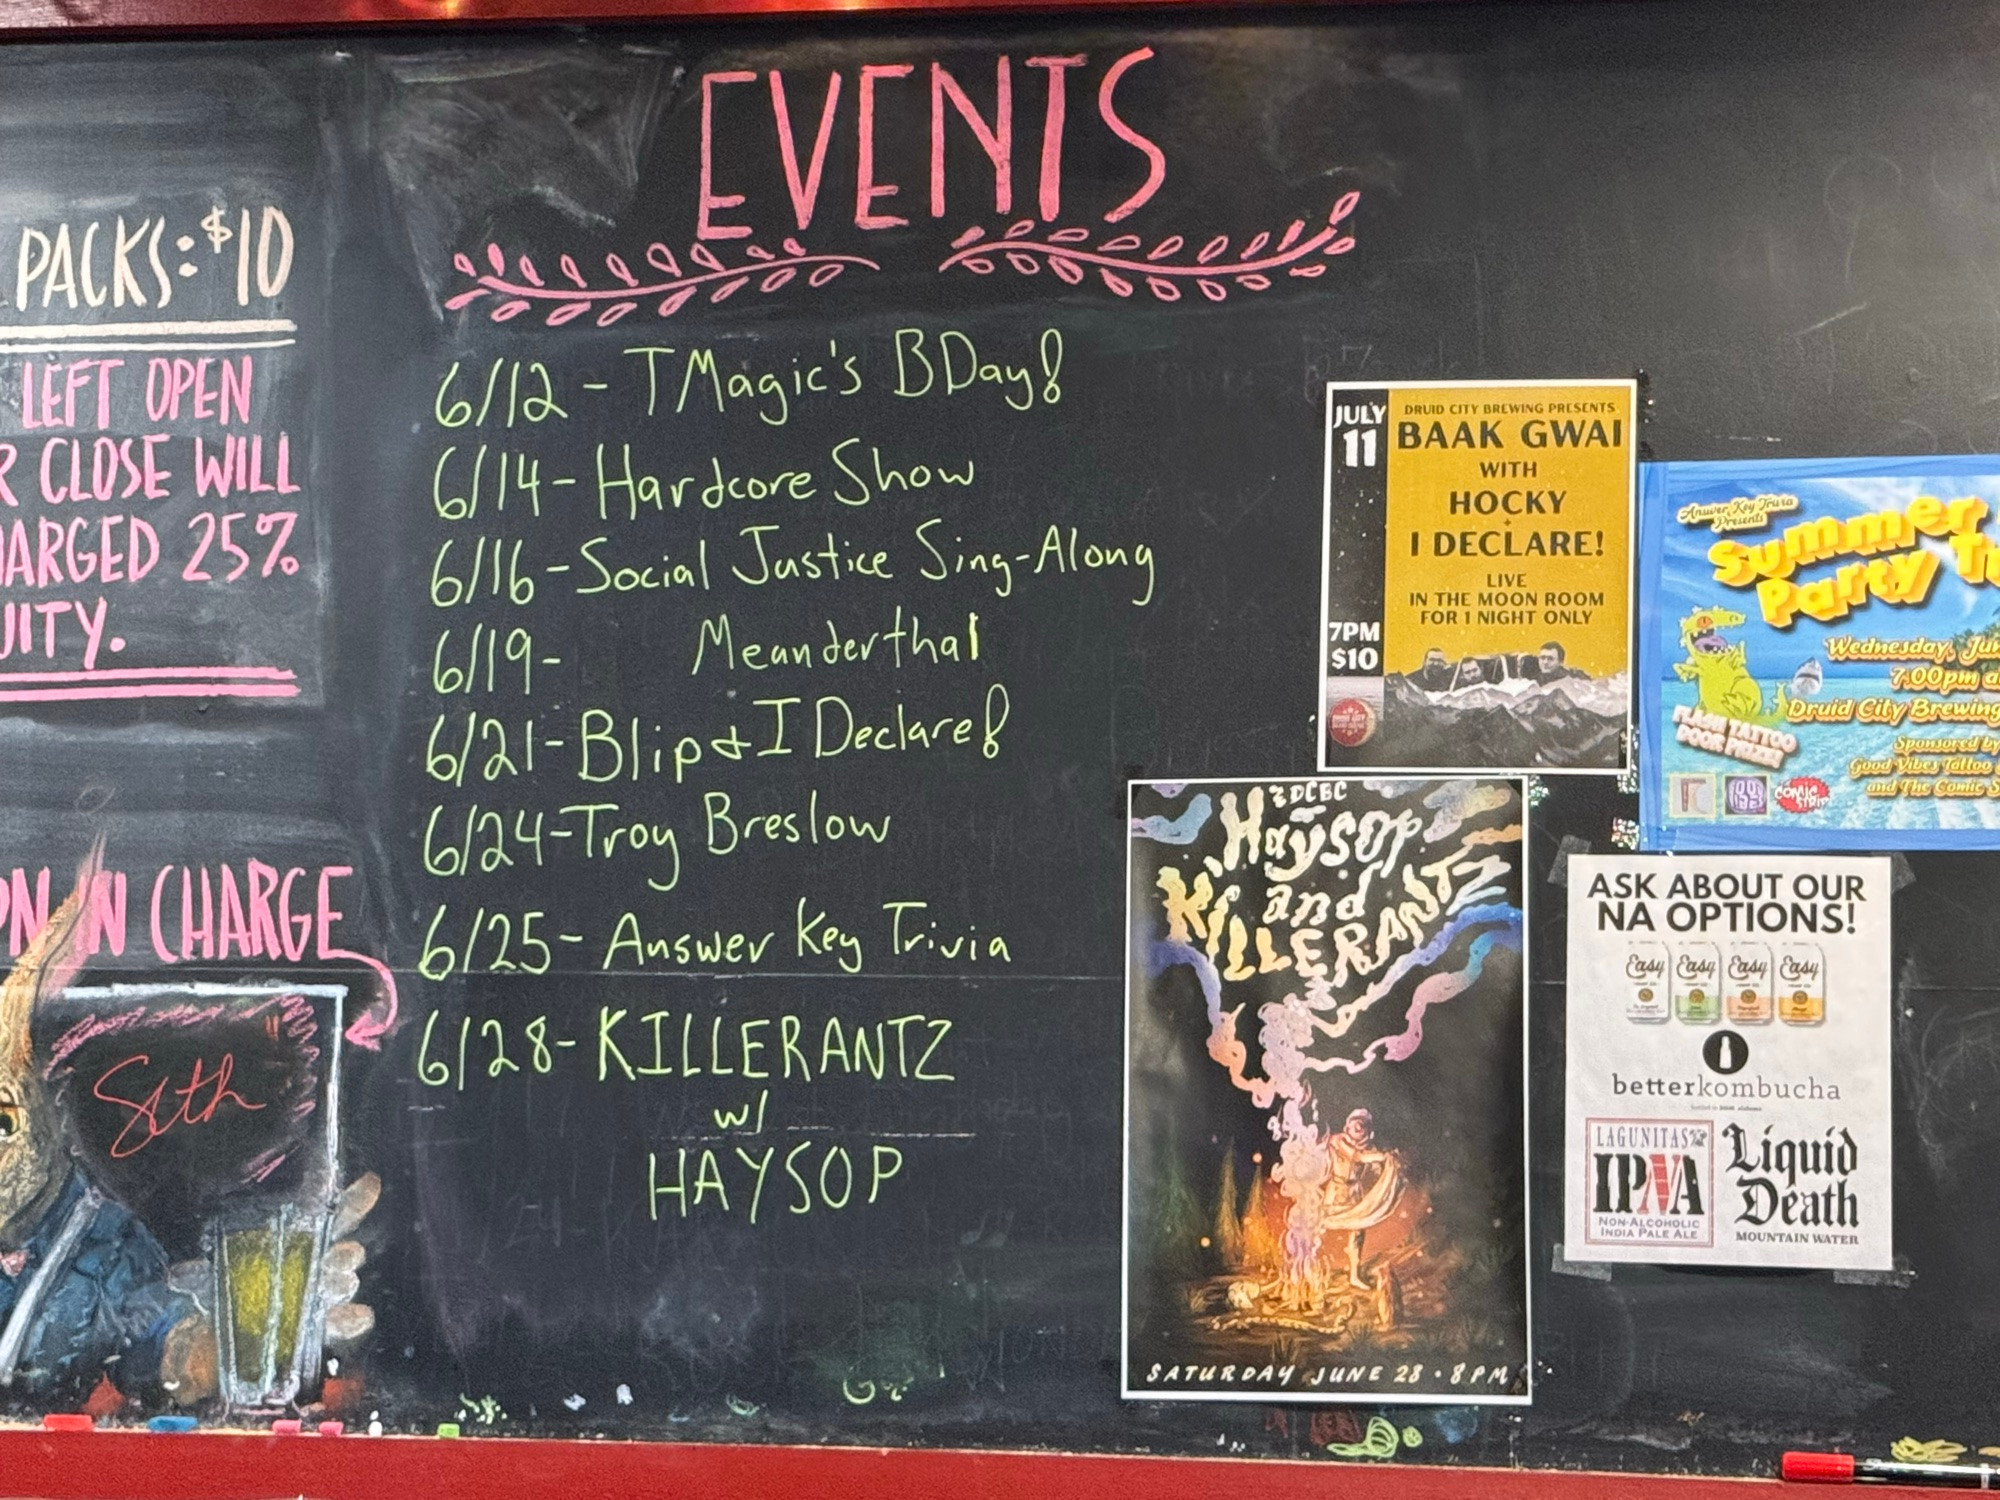 EVENTS
PACKS: $10
LEFT OPEN
CLOSE WILL
25%
IN CHARGE
Seth
6/12 - TMagic's BDay!
6/14 - Hardcore Show
6/16 - Social Justice Sing-Along
6/19 - Meanderthal
6/21 - Blip & I Declare!
6/24 - Troy Breslow
6/25 - Answer Key Trivia
6/28 - KILLERANTZ
w/
HAYSOP
JULY
11
7PM
$10
DRUID CITY BREWING PRESENTS
BAAK GWAI
WITH
HOCKY
+
I DECLARE!
LIVE
IN THE MOON ROOM
FOR 1 NIGHT ONLY
Answer Key Trivia
Presents
Summer
Party
Wednesday,
7:00pm
Druid City Brewing
Sponsored by
Good Vibes Tattoo
and The Comic
FLASH TATTOO
DOOR PRIZES!
COMIC
STRIP
@ DCBC
Haysop
and
KILLERANTZ
SATURDAY JUNE 28 • 8PM
ASK ABOUT OUR
NA OPTIONS!
Easy Easy Easy Easy
betterkombucha
LAGUNITAS
IPNA
NON-ALCOHOLIC
INDIA PALE ALE
Liquid
Death
MOUNTAIN WATER